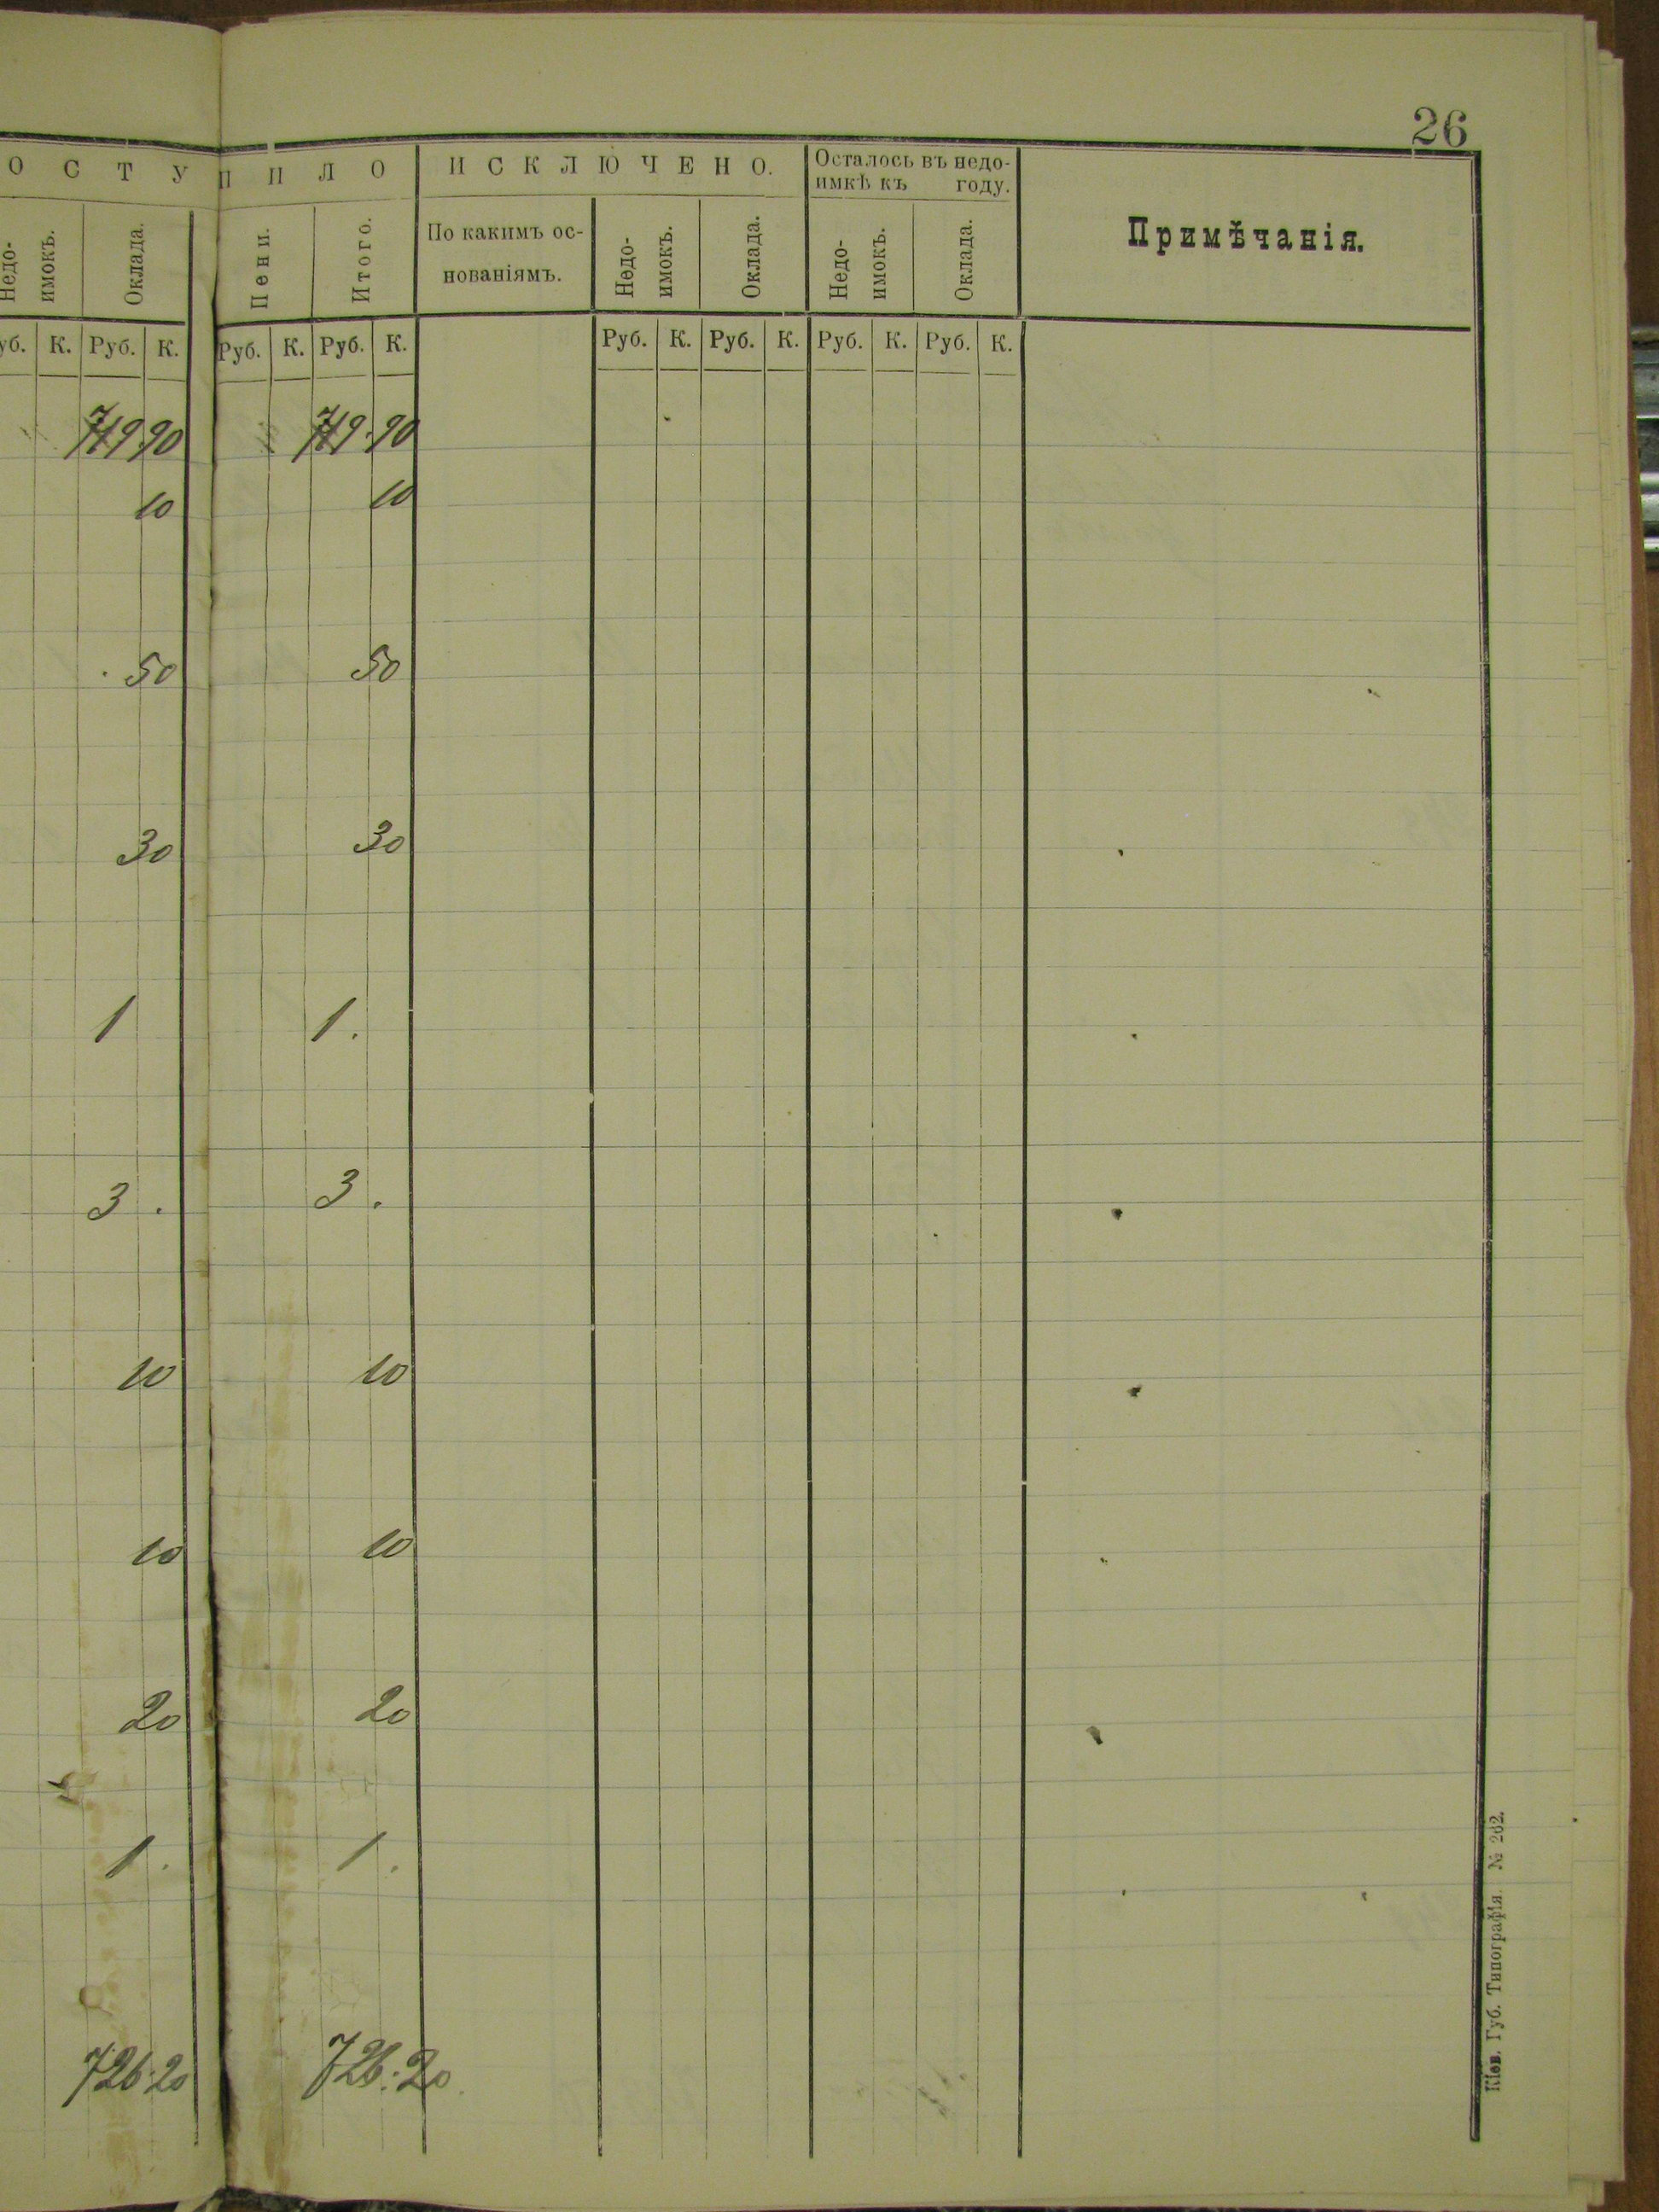 26
О С Т У П И Л О И С К Л Ю Ч Е Н О. Осталось въ недо-
имкѣ къ году.
Недо-
имокъ. Оклада. Пени. Итого. По какимъ ос-
нованіямъ. Недо-
имокъ. Оклада. Недо-
имокъ. Оклада. Примѣчанія.
уб. К. Руб. К. Руб. К. Руб. К. Руб. К. Руб. К. Руб. К. Руб. К.
719.90 719.90
10 10
50 50
30 30
1 1.
3. 3.
10 10
10 10
20 20
1. 1.
726.20 726.20
Кіев. Губ. Типографія. № 262.